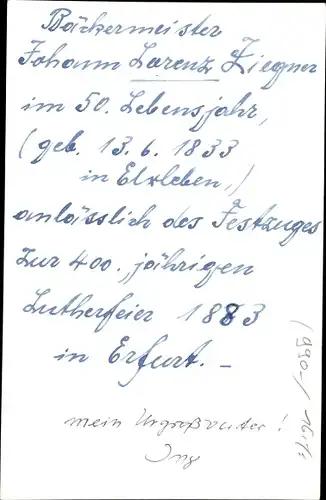 Bäckermeister
Johann Lorenz Ziegner
im 50. Lebensjahr,
(geb. 13. 6. 1833
in Elxleben,)
anlässlich des Festzuges
zur 400. jährigen
Lutherfeier 1883
in Erfurt. –
mein Urgroßvater!